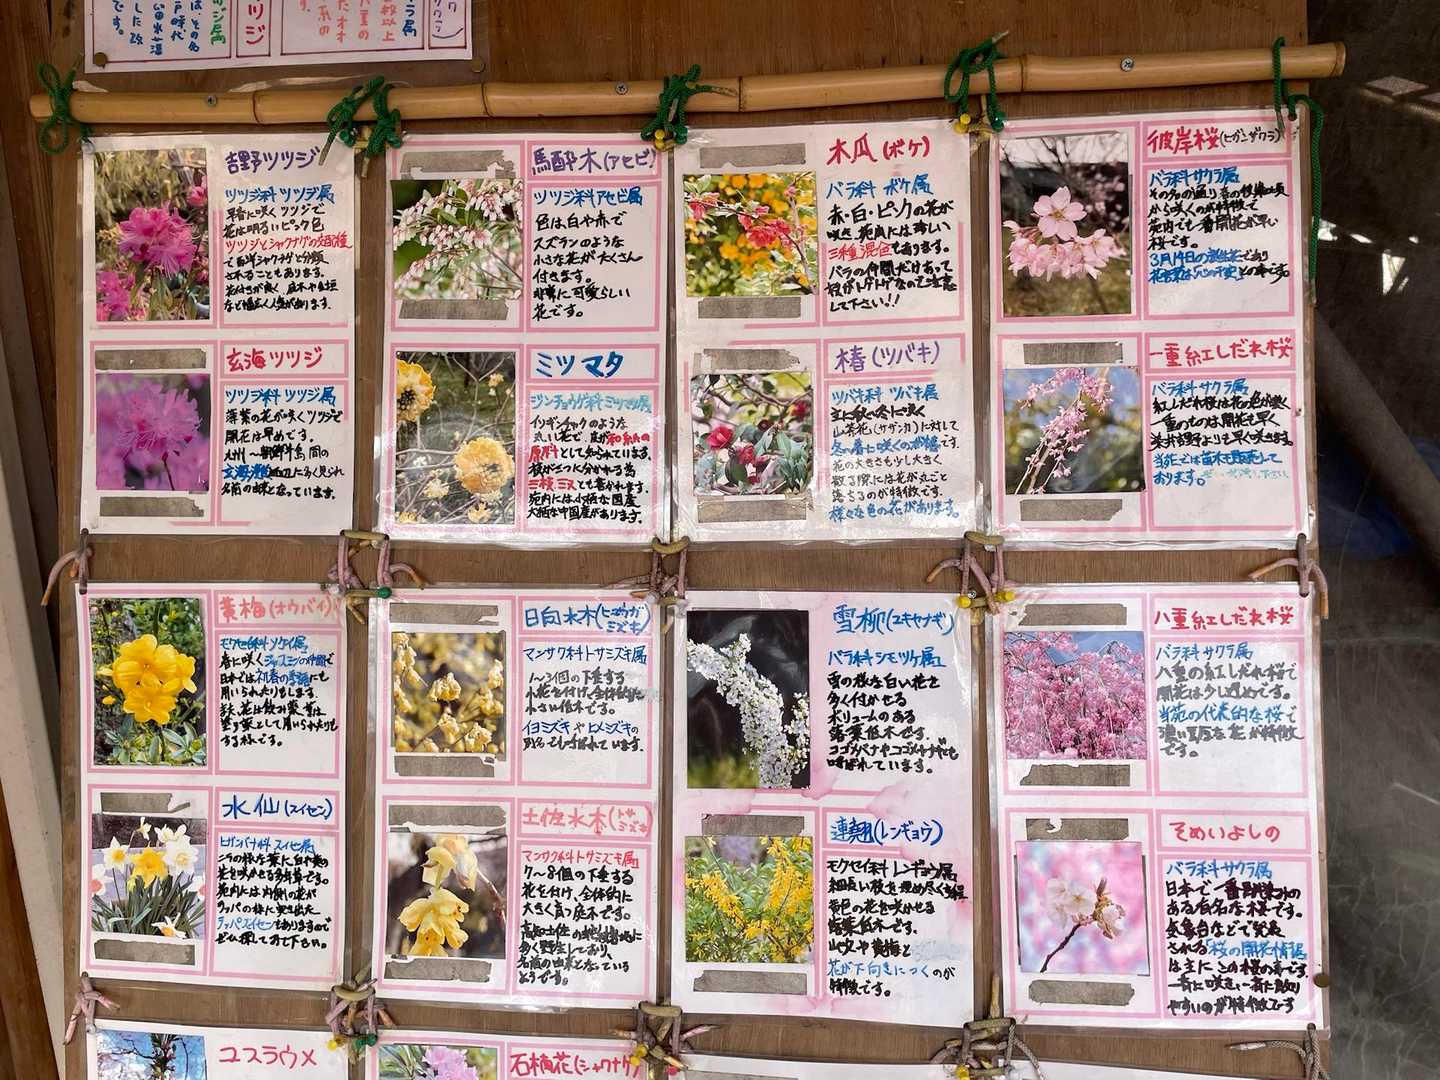 吉野ツツジ
ツツジ科 ツツジ属
早春に咲くツツジで
花は明るいピンク色
ツツジとシャクナゲの交配種
で西洋シャクナゲと分類
されることもあります。
花付きが良く 庭木や生垣
など幅広く人気があります。
玄海ツツジ
ツツジ科 ツツジ属
薄紫の花が咲くツツジで
開花は早めです。
九州〜朝鮮半島 間の
玄海灘周辺に多く見られ
名前の由来となっています。
馬酔木(アセビ)
ツツジ科 アセビ属
色は白や赤で
スズランのような
小さな花がたくさん
付きます。
非常に可愛らしい
花です。
ミツマタ
ジンチョウゲ科ミツマタ属
イソギンチャクのような
丸い花で、皮が和紙の
原料として知られています。
枝が三つに分かれる為
三枝 三又とも書かれます。
苑内には小柄な国産
大柄な中国産があります。
木瓜(ボケ)
バラ科 ボケ属
赤・白・ピンクの花が
咲き 苑内には珍しい
三種混色もあります。
バラの仲間だけあって
枝がトゲトゲなのでご注意
して下さい!!
椿(ツバキ)
ツバキ科 ツバキ属
主に秋〜冬に咲く
山茶花(サザンカ)に対して
冬〜春に咲くのが椿です。
花の大きさも少し大きく
散る際には花が丸ごと
落ちるのが特徴です。
様々な色の花があります。
彼岸桜(ヒガンザクラ)
バラ科サクラ属
その名の通り春の彼岸の頃
から咲くのが特徴で
苑内でも一番開花が早い
桜です。
3月14日の誕生花であり
花言葉は「心の平安」との事です。
一重紅しだれ桜
バラ科サクラ属
紅しだれ桜は花の色が濃く
一重のものは開花も早く
染井吉野よりも早く咲きます。
当苑では苗木も販売して
おります。
黄梅(オウバイ)
モクセイ科ソケイ属
春に咲くジャスミンの仲間で
日本では初春の季語にも
用いられたりもします。
又、花は飲み薬、葉は
塗り薬として用いられたりも
する様です。
水仙(スイセン)
ヒガンバナ科 スイセン属
ニラの様な葉に白や黄の
花を咲かせる多年草です。
苑内には内側の花が
ラッパの様に突き出た
ラッパスイセンもありますので
ぜひ探してみて下さい。
日向水木(ヒュウガミズキ)
マンサク科 トサミズキ属
1〜3個の下垂する
小花を付け、全体的に
小さい低木です。
イヨミズキ や ヒメミズキの
別名でも呼ばれています。
土佐水木(トサミズキ)
マンサク科 トサミズキ属
7〜8個の下垂する
花を付け、全体的に
大きく育つ庭木です。
高知土佐の蛇紋岩地に
多く野生しており、
名前の由来となっている
ようです。
雪柳(ユキヤナギ)
バラ科 シモツケ属
雪の様な白い花を
多く付かせる
ボリュームのある
落葉低木です。
コゴメバナやコゴメヤナギとも
呼ばれています。
連翹(レンギョウ)
モクセイ科 レンギョウ属
細長い枝を埋め尽くす程
黄色の花を咲かせる
落葉低木です。
山吹や黄梅と
花が下向きにつくのが
特徴です。
八重紅しだれ桜
バラ科サクラ属
八重の紅しだれ桜で
開花は少し遅めです。
当苑の代表的な桜で
濃い豊かな花が特徴
です。
そめいよしの
バラ科サクラ属
日本で一番馴染みの
ある有名な桜です。
気象台などで発表
される「桜の開花情報」
は主にこの桜の事です。
一斉に咲き、一斉に散り
やすいのが特徴です
ユスラウメ
石楠花(シャクナゲ)